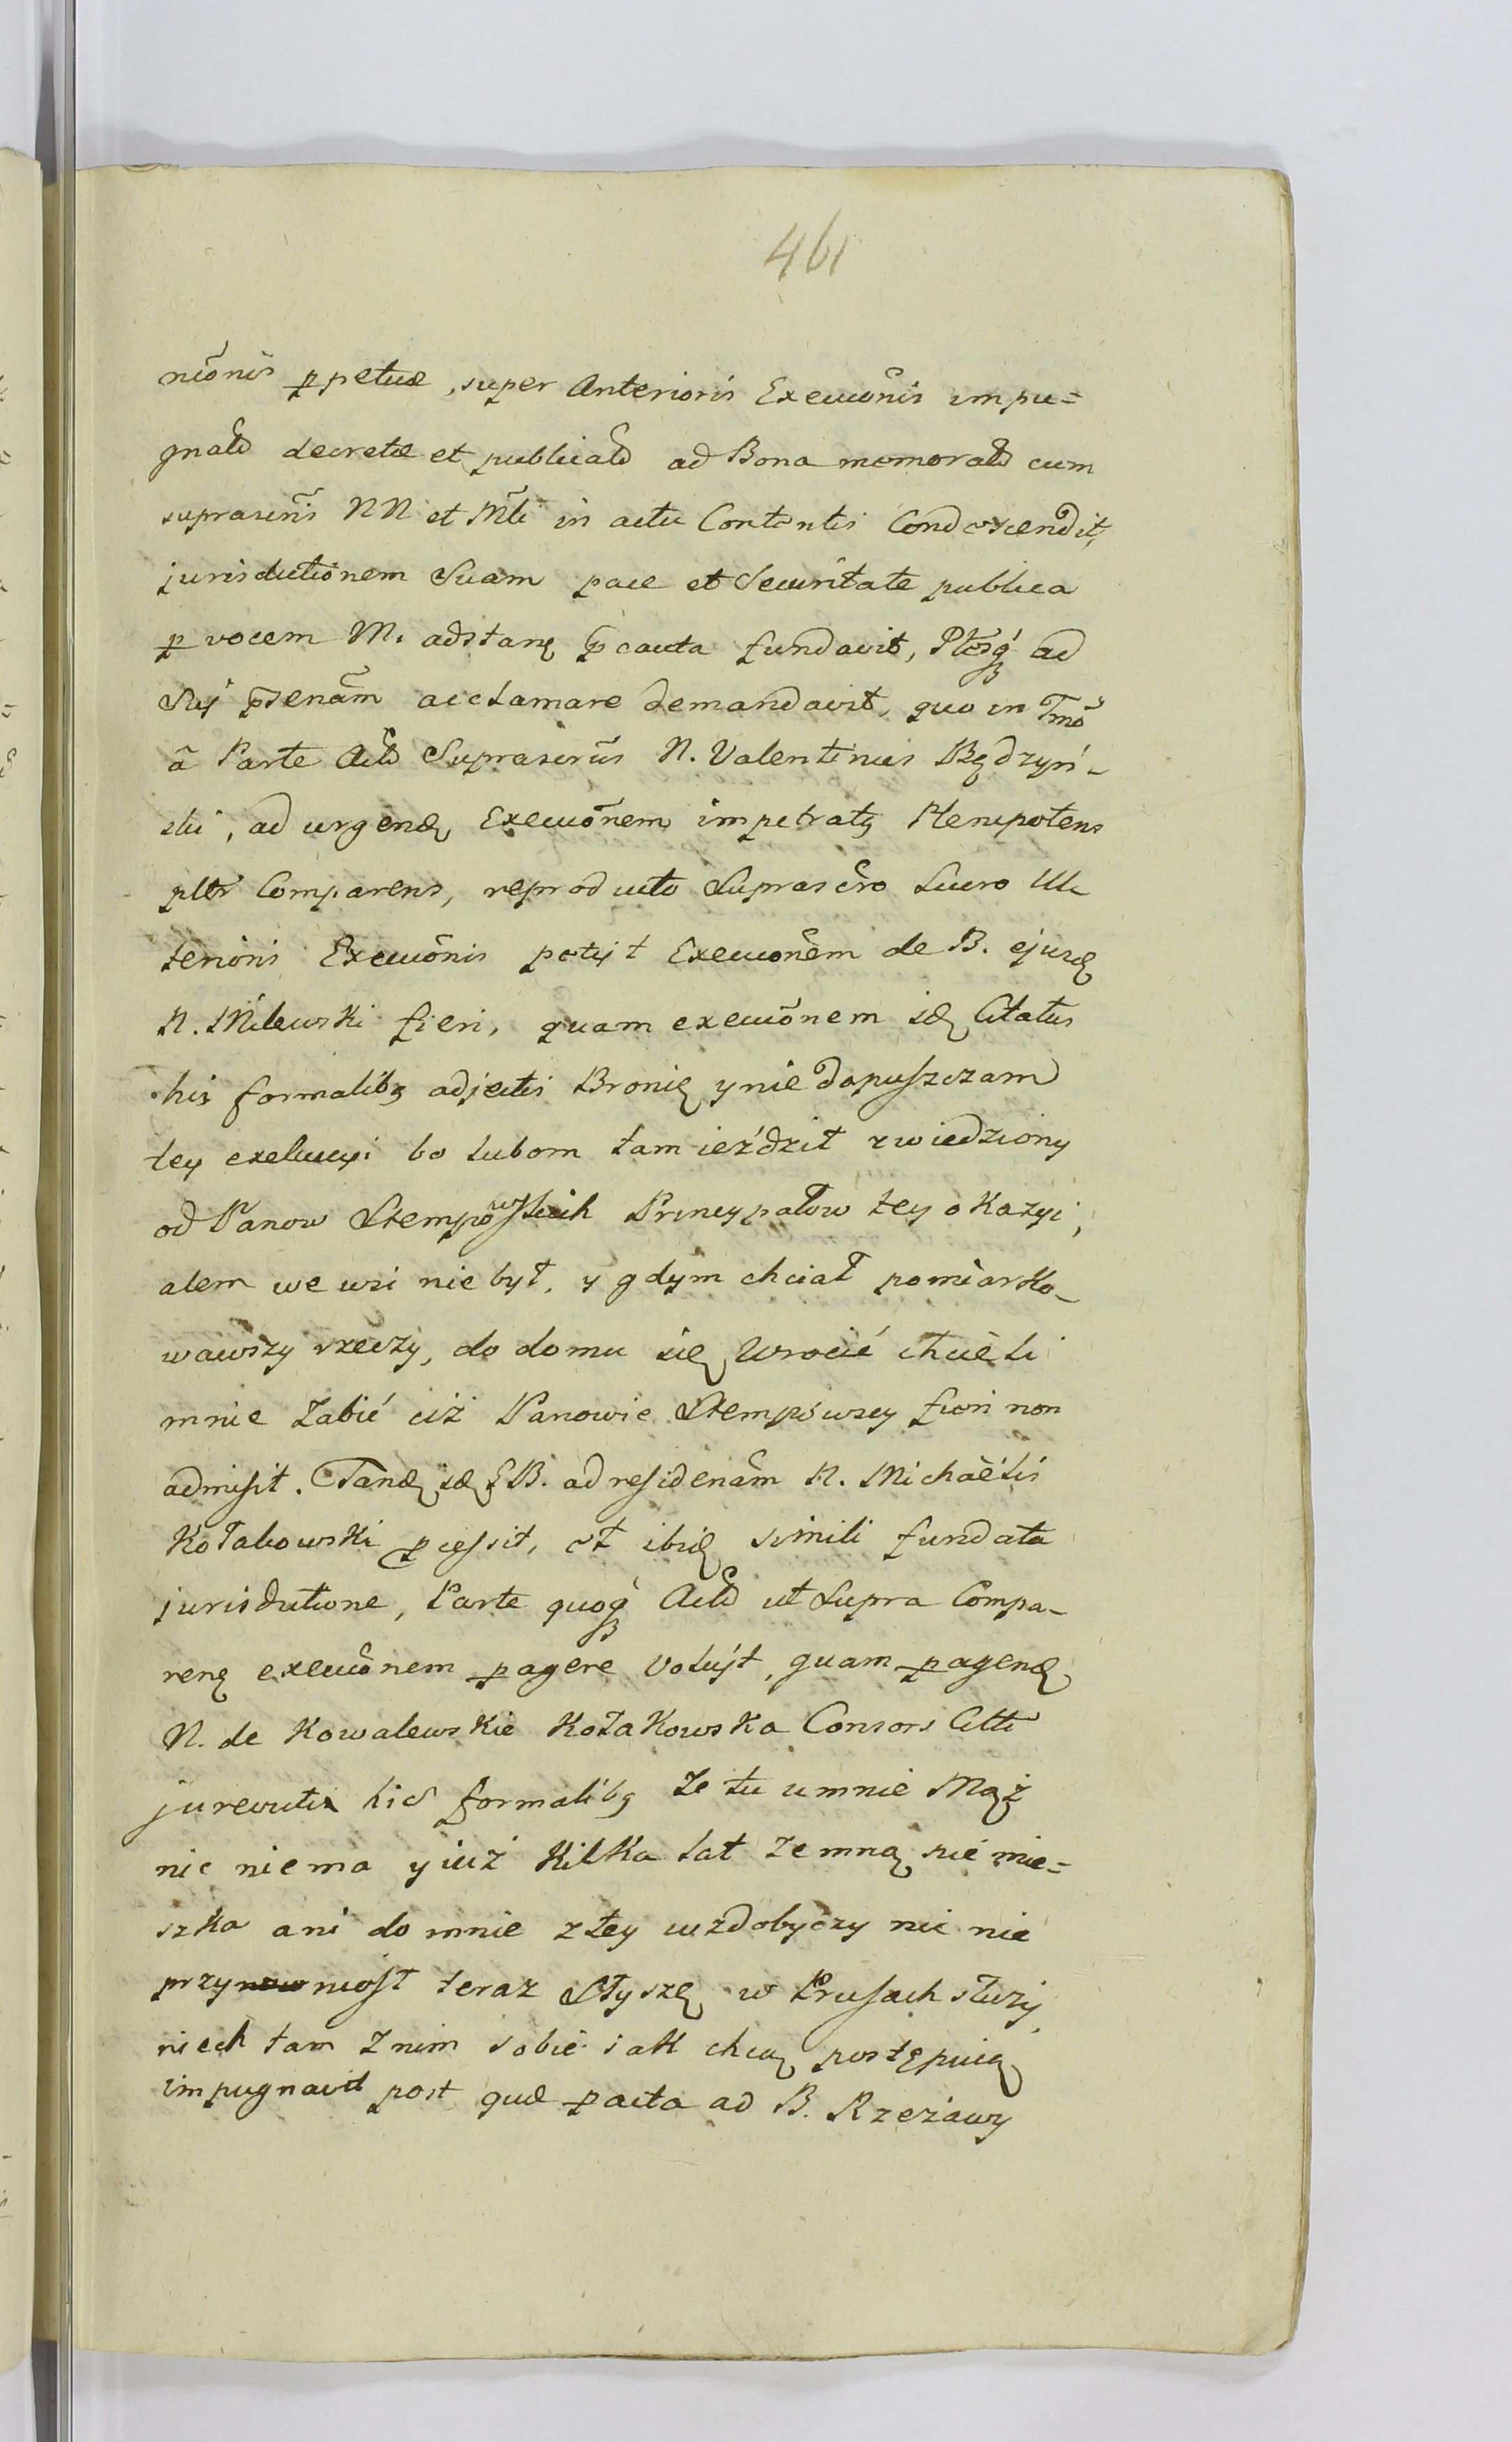 461
niõnis ppetuæ, super Anterioris Execuõnis impu=
gnatæ decretæ et publicatæ ad Bona memorata cum
suprascris NN et Mli in actu Contentis Condescendit,
jurisdictiõnem Suam pace et Securitate publica
p vocem M. adstanę pcauta fundavit, Ptesq́ ad
Sui psenãm acclamare demandavit, quo in Tmõ
ã Parte Actæ Suprascrus N. Valentinus Będzyń-
ski, ad urgenę Execuõnem impetratę Plenipotens
pltr Comparens, reproducto Suprascro Lucro Ul
terioris Execuõnis petyt Execuõnem de B. ejusę
N. Milewski fieri, quam execuõnem idę Citatus
his formalibg adjectis Bronię y nie dopuszczam
tey exekucyi bo lubom tam ieździł zwiedziony
od Panow Stempowskich Pryncypałow tey okazyi,
alem we wsi nie był, y gdym chciał pomiarko-
wawszy rzeczy, do domu się wrocić chcieli
mnie zabić ciż Panowie Stempowscy fieri non
admisit. Tandę idę SB. ad residenãm N. Michaëlis
Kołakowski pcessit, et ibidę simili fundata
jurisdictione, Parte quoq́ Actæ ut Supra Compa-
renę execuõnem pagere voluyt, quam pagendę
N. de Kowalewskie Kołakowska Consors Citti
jurevicti his formalibg Ze tu u mnie Mąż
nic niema y iuż Kilka lat zemną nie mie=
szka ani do mnie z tey wzdobyczy nic nie
przyniosł teraz Słyszę w Prusach służy,
niech tam z nim sobie iak chcą postępuią
impugnavit post quæ pacta ad B. Rzeżawy